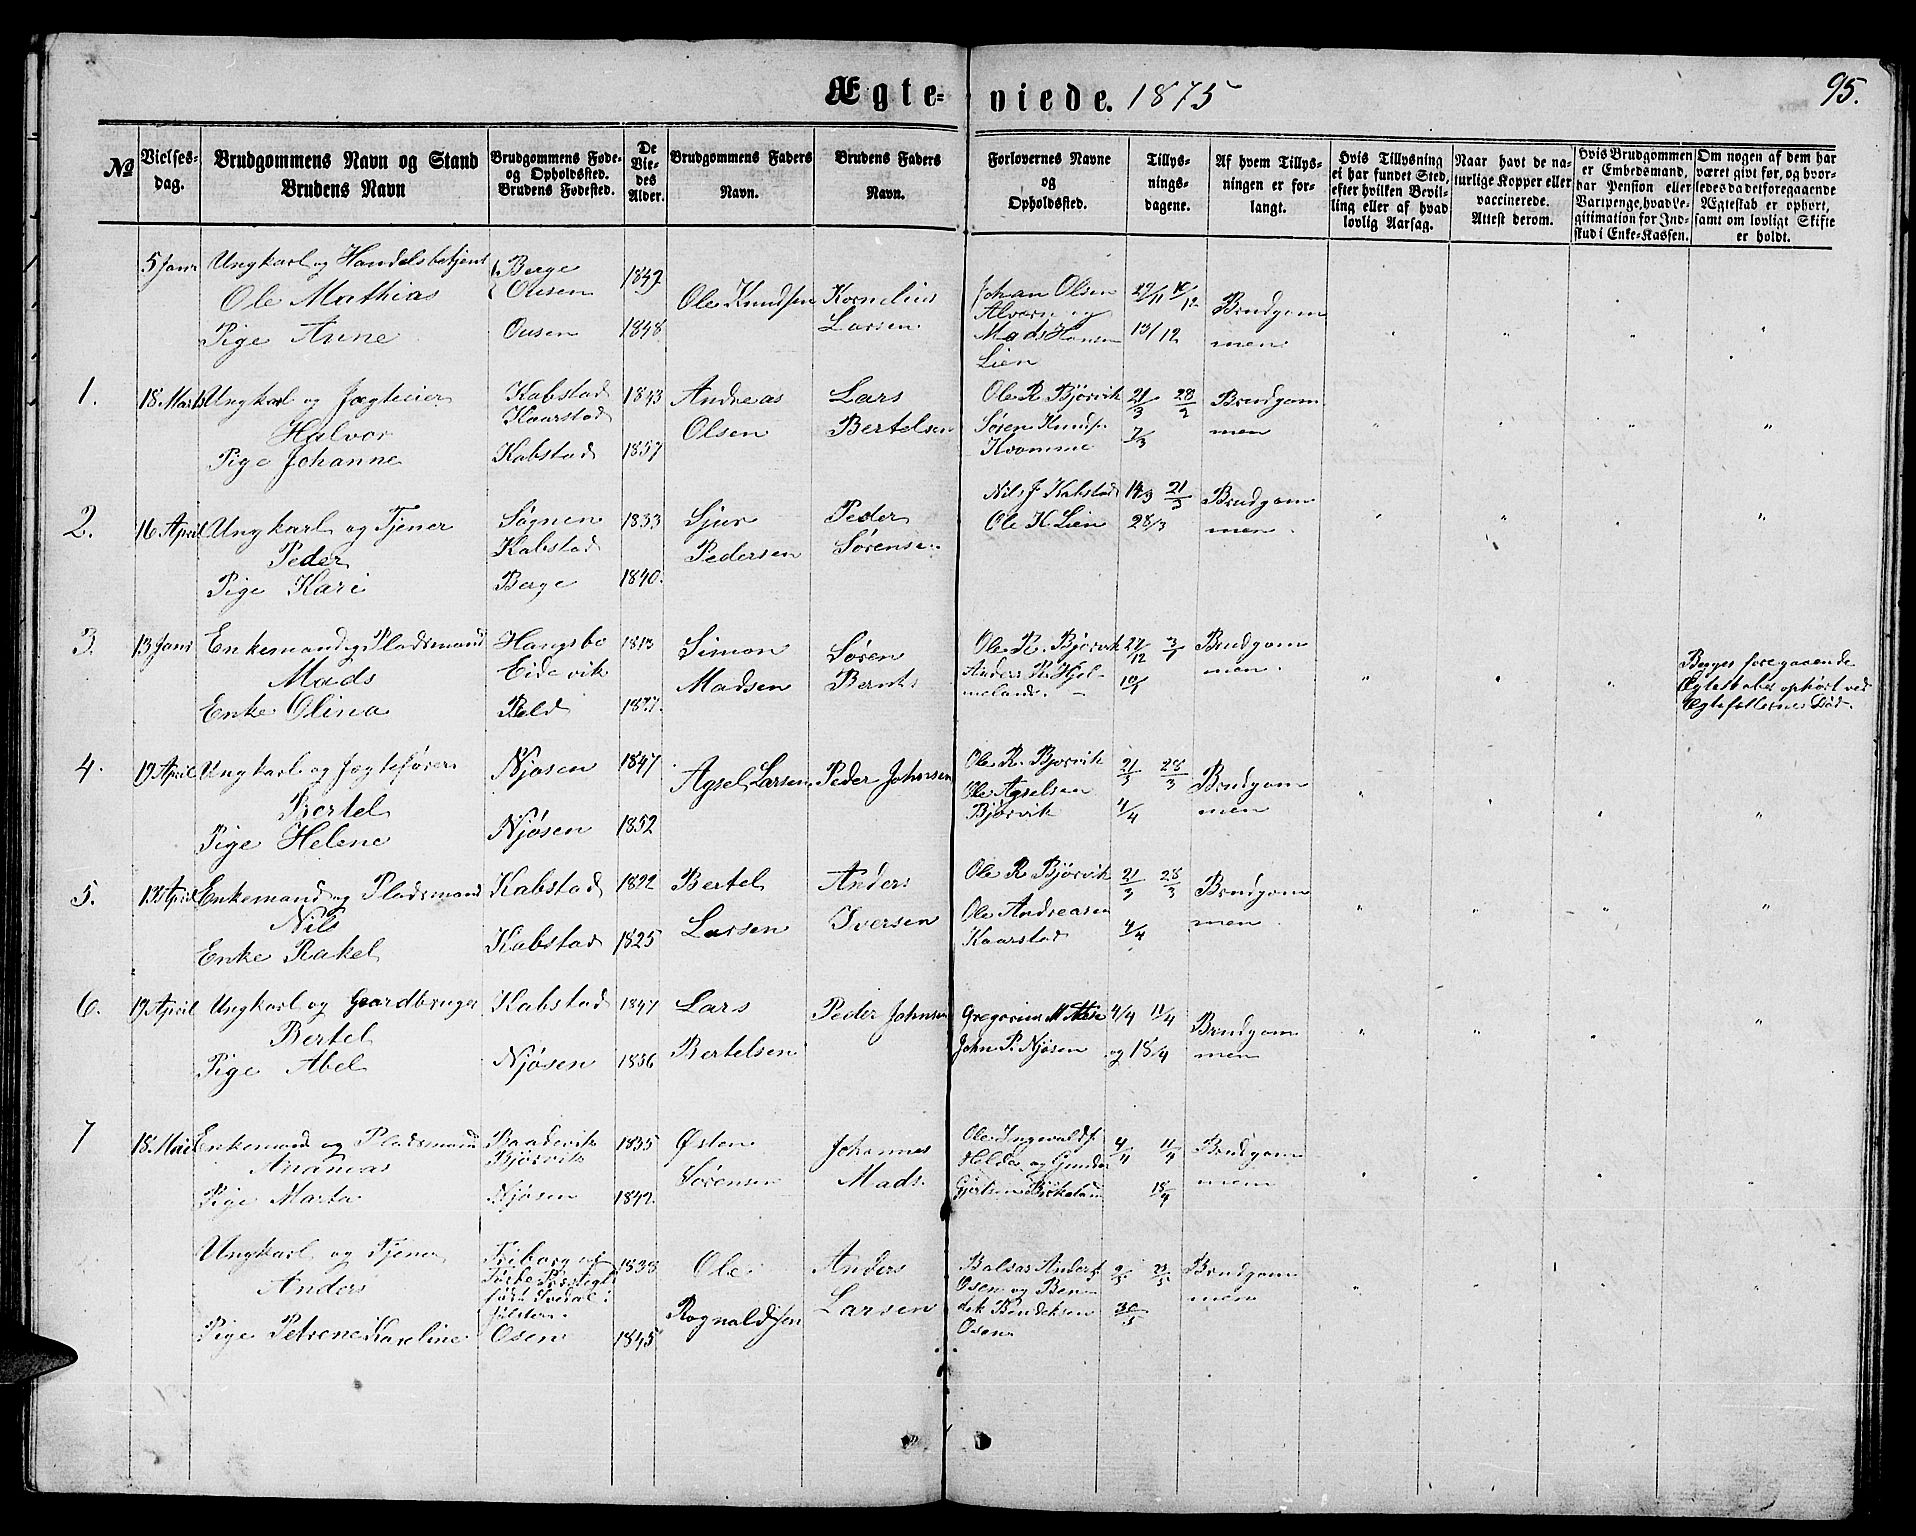 Ægte-
viede. 1875
95.
No
Vielses-
dag.
Brudgommens Navn og Stand
Brudens Navn
Brudgommens Føde-
og Opholdssted.
Brudens Fødested.
De
Vie-
des
Alder.
Brudgommens Faders
Navn.
Brudens Faders
Navn.
Forlovernes Navne
og
Opholdssted.
Tillys-
nings-
dagene.
Af hvem Tillys-
ningen er for-
langt.
Hvis Tillysning
ei har fundet Sted,
efter hvilken Bevil-
ling eller af hvad
lovlig Aarsag.
Naar havt de na-
turlige Kopper eller
vaccinerede.
Attest derom.
Hvis Brudgommen
er Embedsmand,
har Pension eller
Vartpenge, hvad Le-
gitimation for Ind-
skud i Enke-Kassen.
Om nogen af dem har
været givt før, og hvor-
ledes da det foregaaende
Ægteskab er ophørt,
samt om lovligt Skifte
er holdt.
5 Janr
Ungkarl og Handelsbetjent
Ole Mathias
Pige Anne
Berge
Ousen
Ousen
1849
1848
Ole Knudsen
Kornelius
Larsen
Johan Olsen
Alvern og
Mads Hansen
Lien
13/12
Brudgom
men
1.
18 Marts
Ungkarl og Jægteeier
Halvor
Pige Johanne
Kabstad
Kaarstad
Kabstad
1843
1857
Andreas
Olsen
Lars
Bertelsen
Ole R. Bjørvik
Søren Knuds.
Kvamme
21/3 28/2
7/3
Brudgom
men
2.
16 April
Ungkarl og Tjener
Peder
Pige Kari
Sognen
Kabstad
Berge
1833
1840.
Sjur
Pedersen
Peder
Sørensen
Nils J. Kabstad
Ole K Lien
14/3 21/3
28/3
Brudgom
men.
3.
13 Janr
Enkemand og Pladsmand
Mads
Enke Olina
Hangsbo
Eidevik
1813
Simon
Madsen
Søren
Bernts.
Ole R. Bjørvik
Anders K. Hjel-
melands.
27/12 3/1
10/1
Brudgom
men.
Begges foregaaende
Ægteskaber ophørt ved
Ægtefællernes Død.
4.
19 April
Ungkarl og Jægtefører
Bertel
Pige Helene
Njøsen
Njøsen
1847
1852
Agsel Larsen
Peder Johnsen
Ole R. Bjørvik
Ole Agselsen
Bjørvik
21/3 28/3
4/4
Brudgom
men
5.
13 April
Enkemand og Pladsmand
Nils
Enke Rakel
Kabstad
Kabstad
1822
1825
Bertel
Larsen
Anders
Iversen
Ole R Bjørvik
Ole Andreasen
Kaarstad
21/3 28/3
4/4
Brudgom
men.
6.
19 April
Ungkarl og Gaardbruger
Bertel
Pige Abel
Kabstad
Njøsen
1847
1856
Lars
Bertelsen
Peder Johnsen
John P. Njøsen
4/4 11/4
og 18/4
Brudgom
men
7
18 Mai
Enkemand og Pladsmand
Ananias
Pige Marta
Baadsvik
Bjørvik
Njøsen
1835
1842.
Østen
Sørensen
Johannes
Mads.
Ole Ingevalds.
Helder og Gunder
Gjertsen Birkeland
4/4 11/4
18/4
Brudgom
men
Ungkarl og Tjener
Anders
Pige Petrene Karoline
Osen
1838
1845
Ole
Rognaldsen
Anders
Larsen
Balsar Anders.
Osen og Ben-
dik Bendiksen
Osen
2/5 23/5
30/5
Brudgom
men